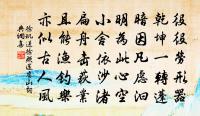 役役勞形器
乾坤一轉蓬
暗因凡慮汩
明為此心空
小舍依沙渚
扁舟擊荻叢
且能漁釣樂
亦似古人風